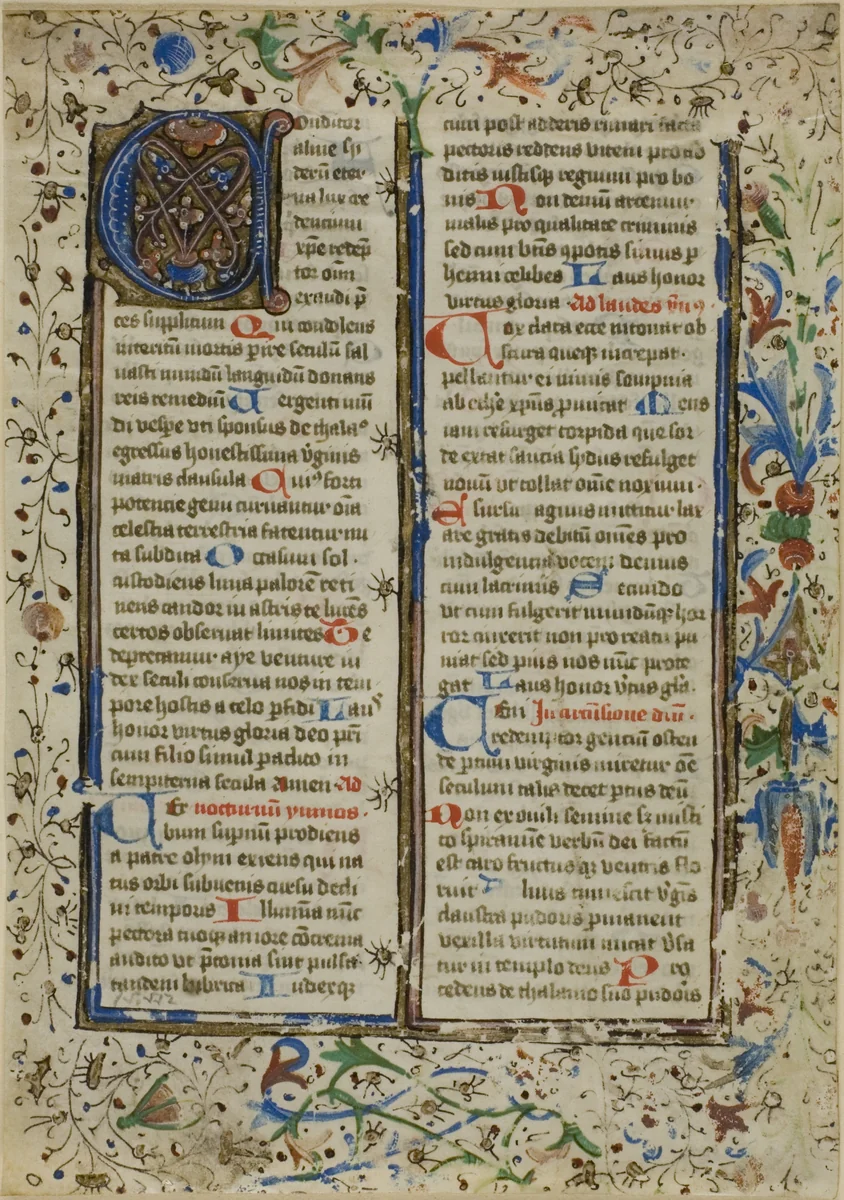 Conditor
alme sy
derū eter
na lux cre
dencium
xp̄e redēp
tor om̄
exaudi p̄
ces supplicum Qui condolens
interitū mortis p̄ire seculū sal
uasti mundū languidū donans
reis remediū Uergenti mū
di vesp̄e uti sponsus de thala⁹
egressus honestissima v̄ginis
matris clausula Cui⁹ forti
potencie genu curuantur oīa
celestia terrestria fatentur nu
tu subdita Occasum sol
custodiens luna palorē reti
nens candor in astris relucēs
certos obseruat limites Te
deprecamur aye venture iu
dex seculi conserua nos in tem
pore hostis a telo p̄fidi Laus
honor virtus gloria deo pr̄i
cum filio simul paclito in
sempiterna secula amen Ad
nocturnū ymnus
Uerbum sup̄nū prodiens
a patre olym exiens qui na
tus orbi subuenis cursu decli
ui temporis Illumīa nūc
pectora tuoq; amore cōcrema
audito ut p̄conia sint pulsa
tandem lubrica Iudexq;
cum post adderis rimari facta
pectoris reddens vicem pro ab
ditis iustisq; regnum pro bo
nis Non demum artemur
malis pro qualitate criminis
sed cum btīs 9potes simus p̄
henni celibes Laus honor
virtus gloria Ad laudes ym̄9
Uox clara ecce intonat ob
scura queq; increpat
pellantur eminus sompnia
ab eth̄e xp̄us p̄micat Mens
iam resurget torpida que sor
de extat saucia sydus refulget
nouū ut tollat om̄e noxium
E sursū agnus mittitur lax
are gratis debitū omēs pro
indulgencia vocem demus
cum lacrimis Secundo
ut cum fulgerit mundūq; hor
ror cinxerit non pro reatu pu
niat sed pius nos nūc prote
gat Laus honor v̄tus gl̄a
In circūsione dnī
Ueni redemptor gencium osten
de p̄tum virginis miretur oē
seculum talis decet p̄tus deū
Non ex virili semine sz misti
co spiramīe verbū dei factū
est caro fructusq; ventris flo
ruit Aluus tumescit v̄gīs
claustra pudoris p̄manent
vexilla virtutum micat v̄sa
tur in templo deus Pro
cedens de thalamo suo pudoris